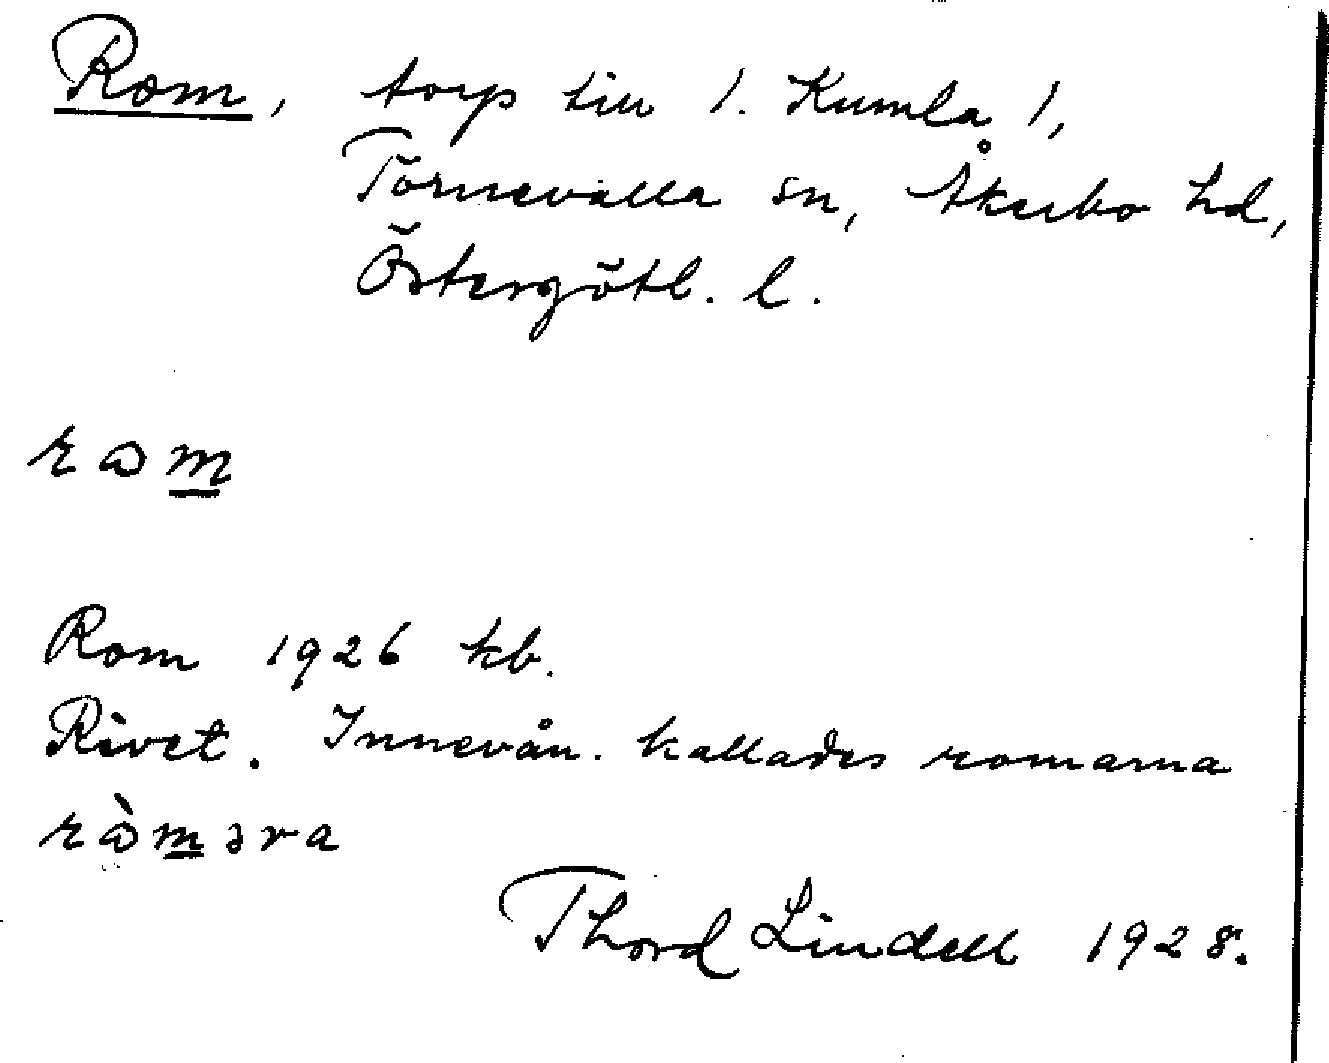 Rom, torp till 1. Kumla 1,
Törnevalla sn, Åkerbo hd,
Östergötl. l.
Rom 1926 kb.
Rivet. Innevån. kallades romarna
Thord Lindell 1928.